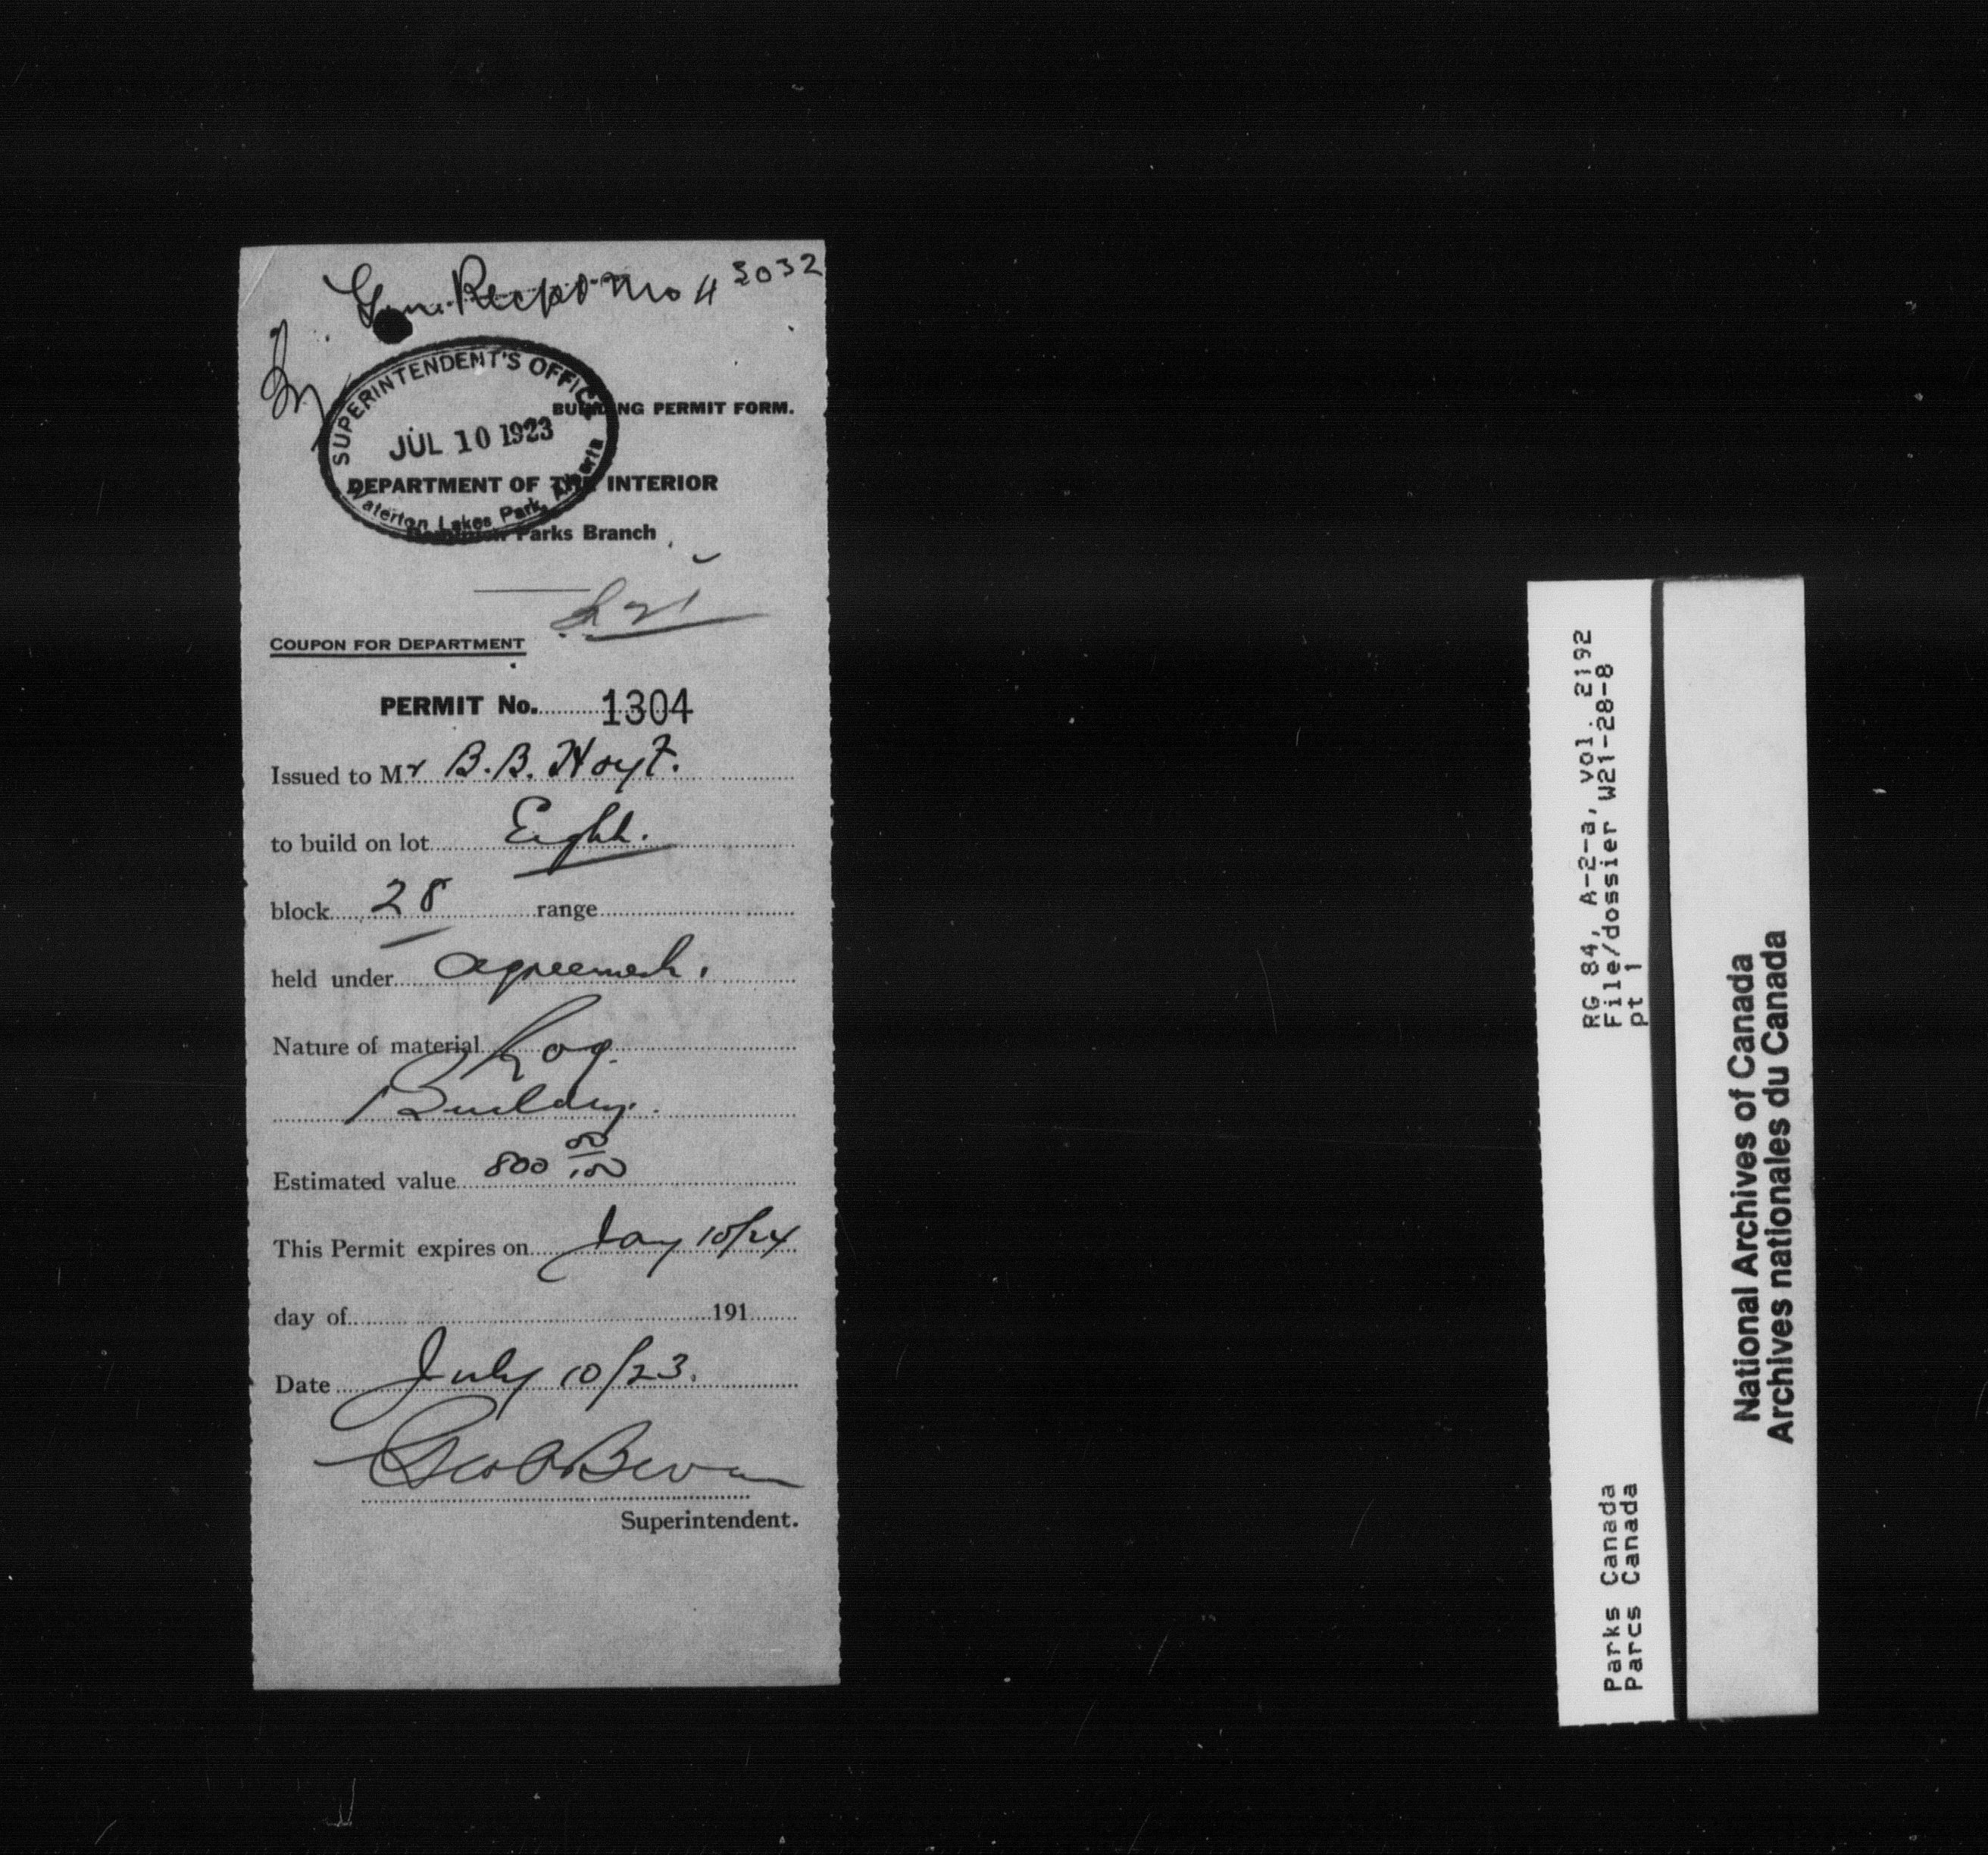 Gen. Recpt No 43032
SUPERINTENDENT'S OFFICE
JUL 10 1923
Waterton Lakes Park, Alberta
BUILDING PERMIT FORM.
DEPARTMENT OF THE INTERIOR
Dominion Parks Branch
COUPON FOR DEPARTMENT
PERMIT No. 1304
Issued to Mr B.B. Hoyt.
to build on lot Eight.
block 28 range
held under agreement.
Nature of material Log
Building.
Estimated value 800 00/100
This Permit expires on Jany 10/24
day of 191
Date July 10/23.
Geo A Bevan
Superintendent.
RG 84, A-2-a, vol. 2192
File/dossier W21-28-8
pt 1
Parks Canada
Parcs Canada
National Archives of Canada
Archives nationales du Canada